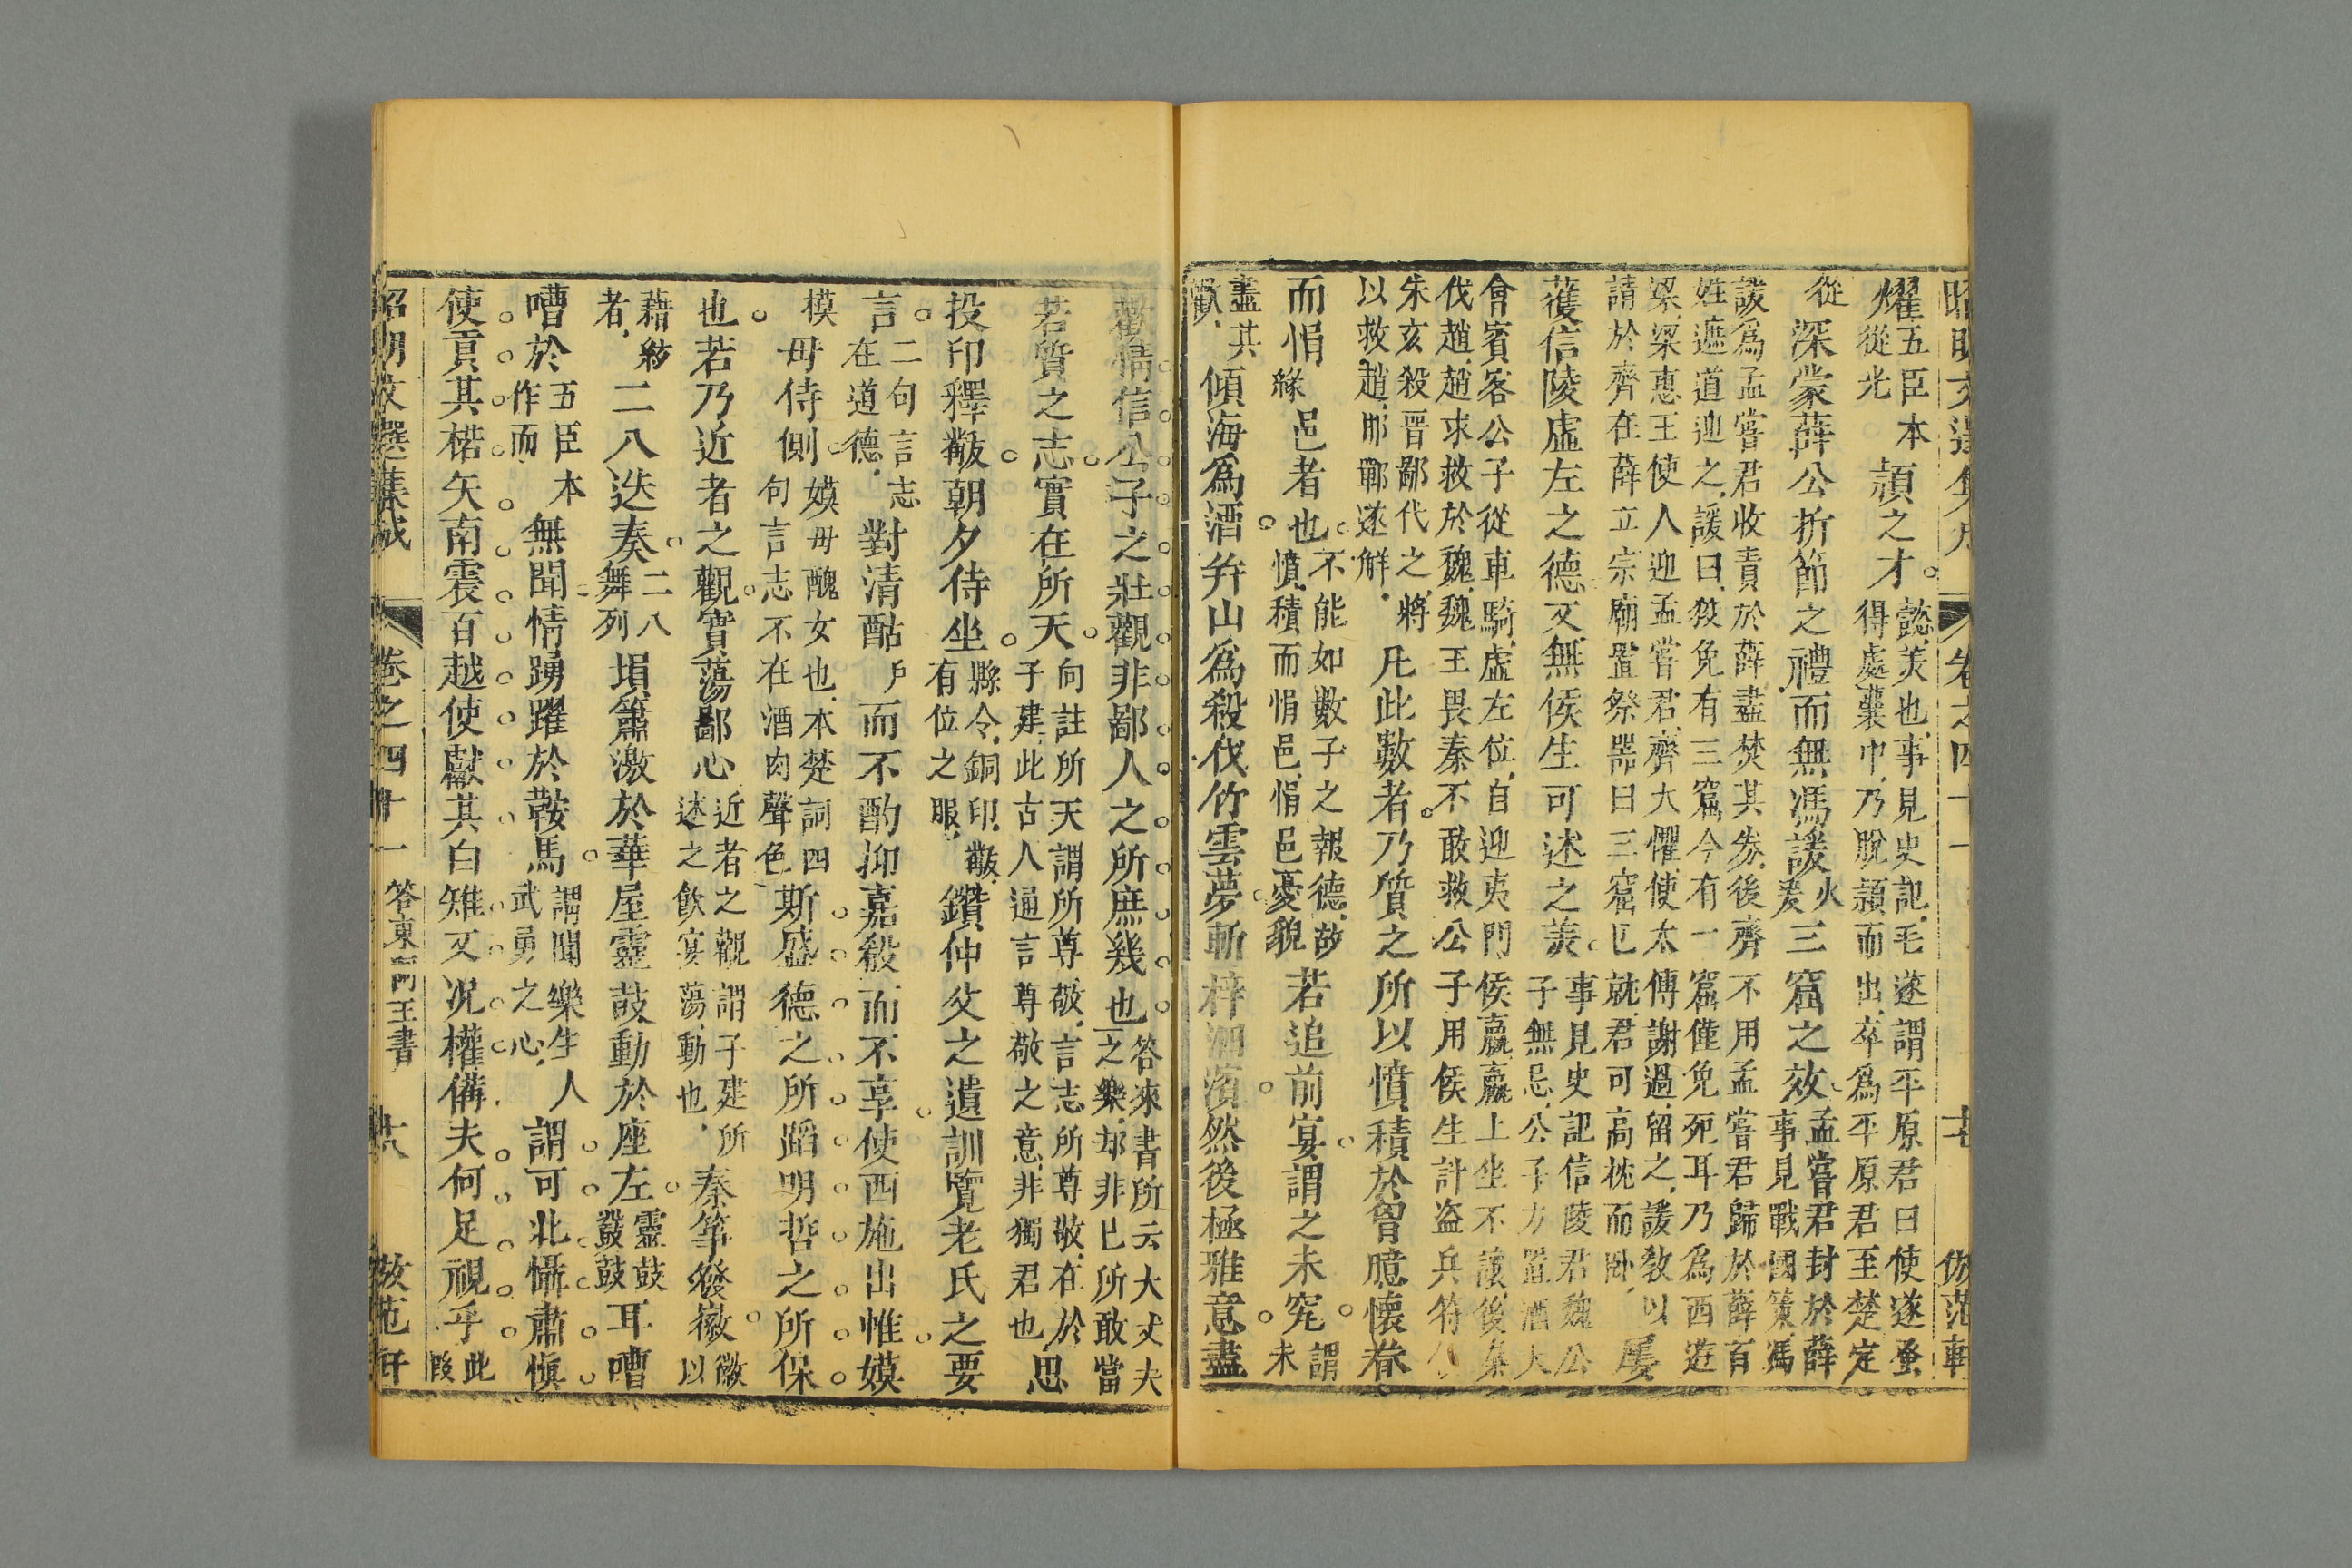 昭明文選集成 卷之四十一 十七 倣范軒
耀五臣本從光穎之才懿美也事見史記毛遂謂平原君曰使遂蚤得處囊中乃脫穎而出卒為平原君至楚定
從深蒙薛公折節之禮而無馮諼火爰三窟之效孟嘗君封於薛事見戰國策馮
諼為孟嘗君收責於薛盡焚其券後齊不用孟嘗君歸於薛百姓遮道迎之諼曰狡兔有三窟今有一窟僅免死耳乃為西遊
梁梁惠王使人迎孟嘗君齊大懼使太傅謝過留之諼教以請於齊在薛立宗廟置祭器曰三窟已就君可高枕而卧屢
獲信陵虛左之德又無侯生可述之美事見史記信陵君魏公子無忌公子方置酒大
會賓客公子從車騎虛左位自迎夷門侯嬴嬴上坐不讓後秦伐趙趙求救於魏魏王畏秦不敢救公子用侯生計盗兵符
朱亥殺晉鄙代之將以救趙邯鄲遂解凡此數者乃質之所以憤積於胷臆懷眷
而悁緣邑者也不能如數子之報德故憤積而悁邑悁邑憂貌若追前宴謂之未究謂未
盡其歡傾海為酒幷山為殽伐竹雲夢斬梓泗濱然後極雅意盡
歡情信公子之壯觀非鄙人之所庶幾也答來書所云大丈夫之樂却非已所敢當
若質之志實在所天向註所天謂所尊敬言志所尊敬在於子建此古人通言尊敬之意非獨君也思
投印釋黻朝夕侍坐縣令銅印黻有位之服鑽仲父之遺訓覽老氏之要
言二句言志在道德對清酤戶而不酌抑嘉殽而不享使西施出帷嫫
模母侍側嫫母醜女也本楚詞四句言志不在酒肉聲色斯盛德之所蹈明哲之所保
也若乃近者之觀實蕩鄙心近者之觀謂子建所述之飲宴蕩動也秦筝發徽徽以
藉絃者二八迭奏二八舞列塤簫激於華屋靈鼓動於座左靈鼓鼖鼓耳嘈
嘈於五臣本作而無聞情踴躍於鞍馬謂聞樂生人武勇之心謂可北懾肅慎
使貢其楛矢南震百越使獻其白雉又況權備夫何足視乎此叚
昭明文選集成 卷之四十一 答東阿王書 十八 倣范軒